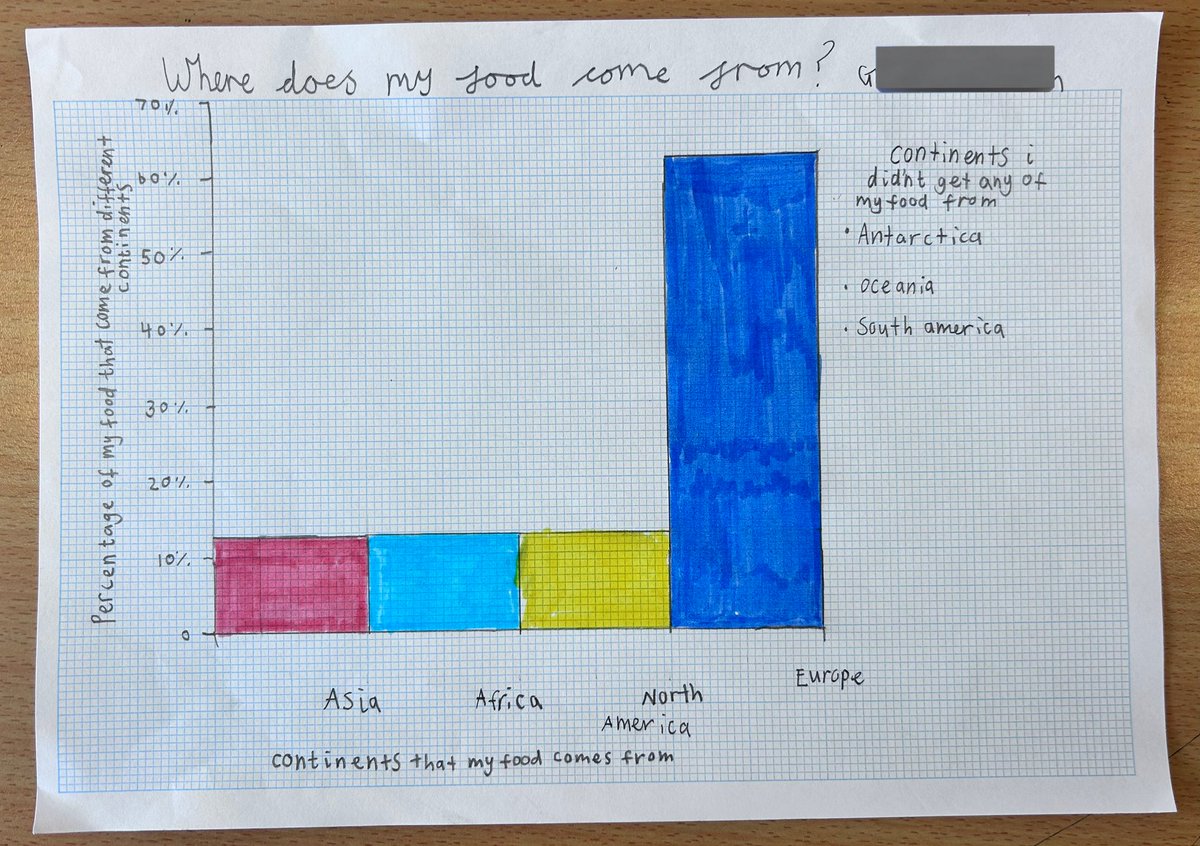 Where does my food come from? G n
70%
60%
50%
40%
30%
20%
10%
0
Percentage of my food that come from different
continents
continents i
didn't get any of
my food from
• Antarctica
• Oceania
• South america
Asia
Africa
North
America
Europe
continents that my food comes from